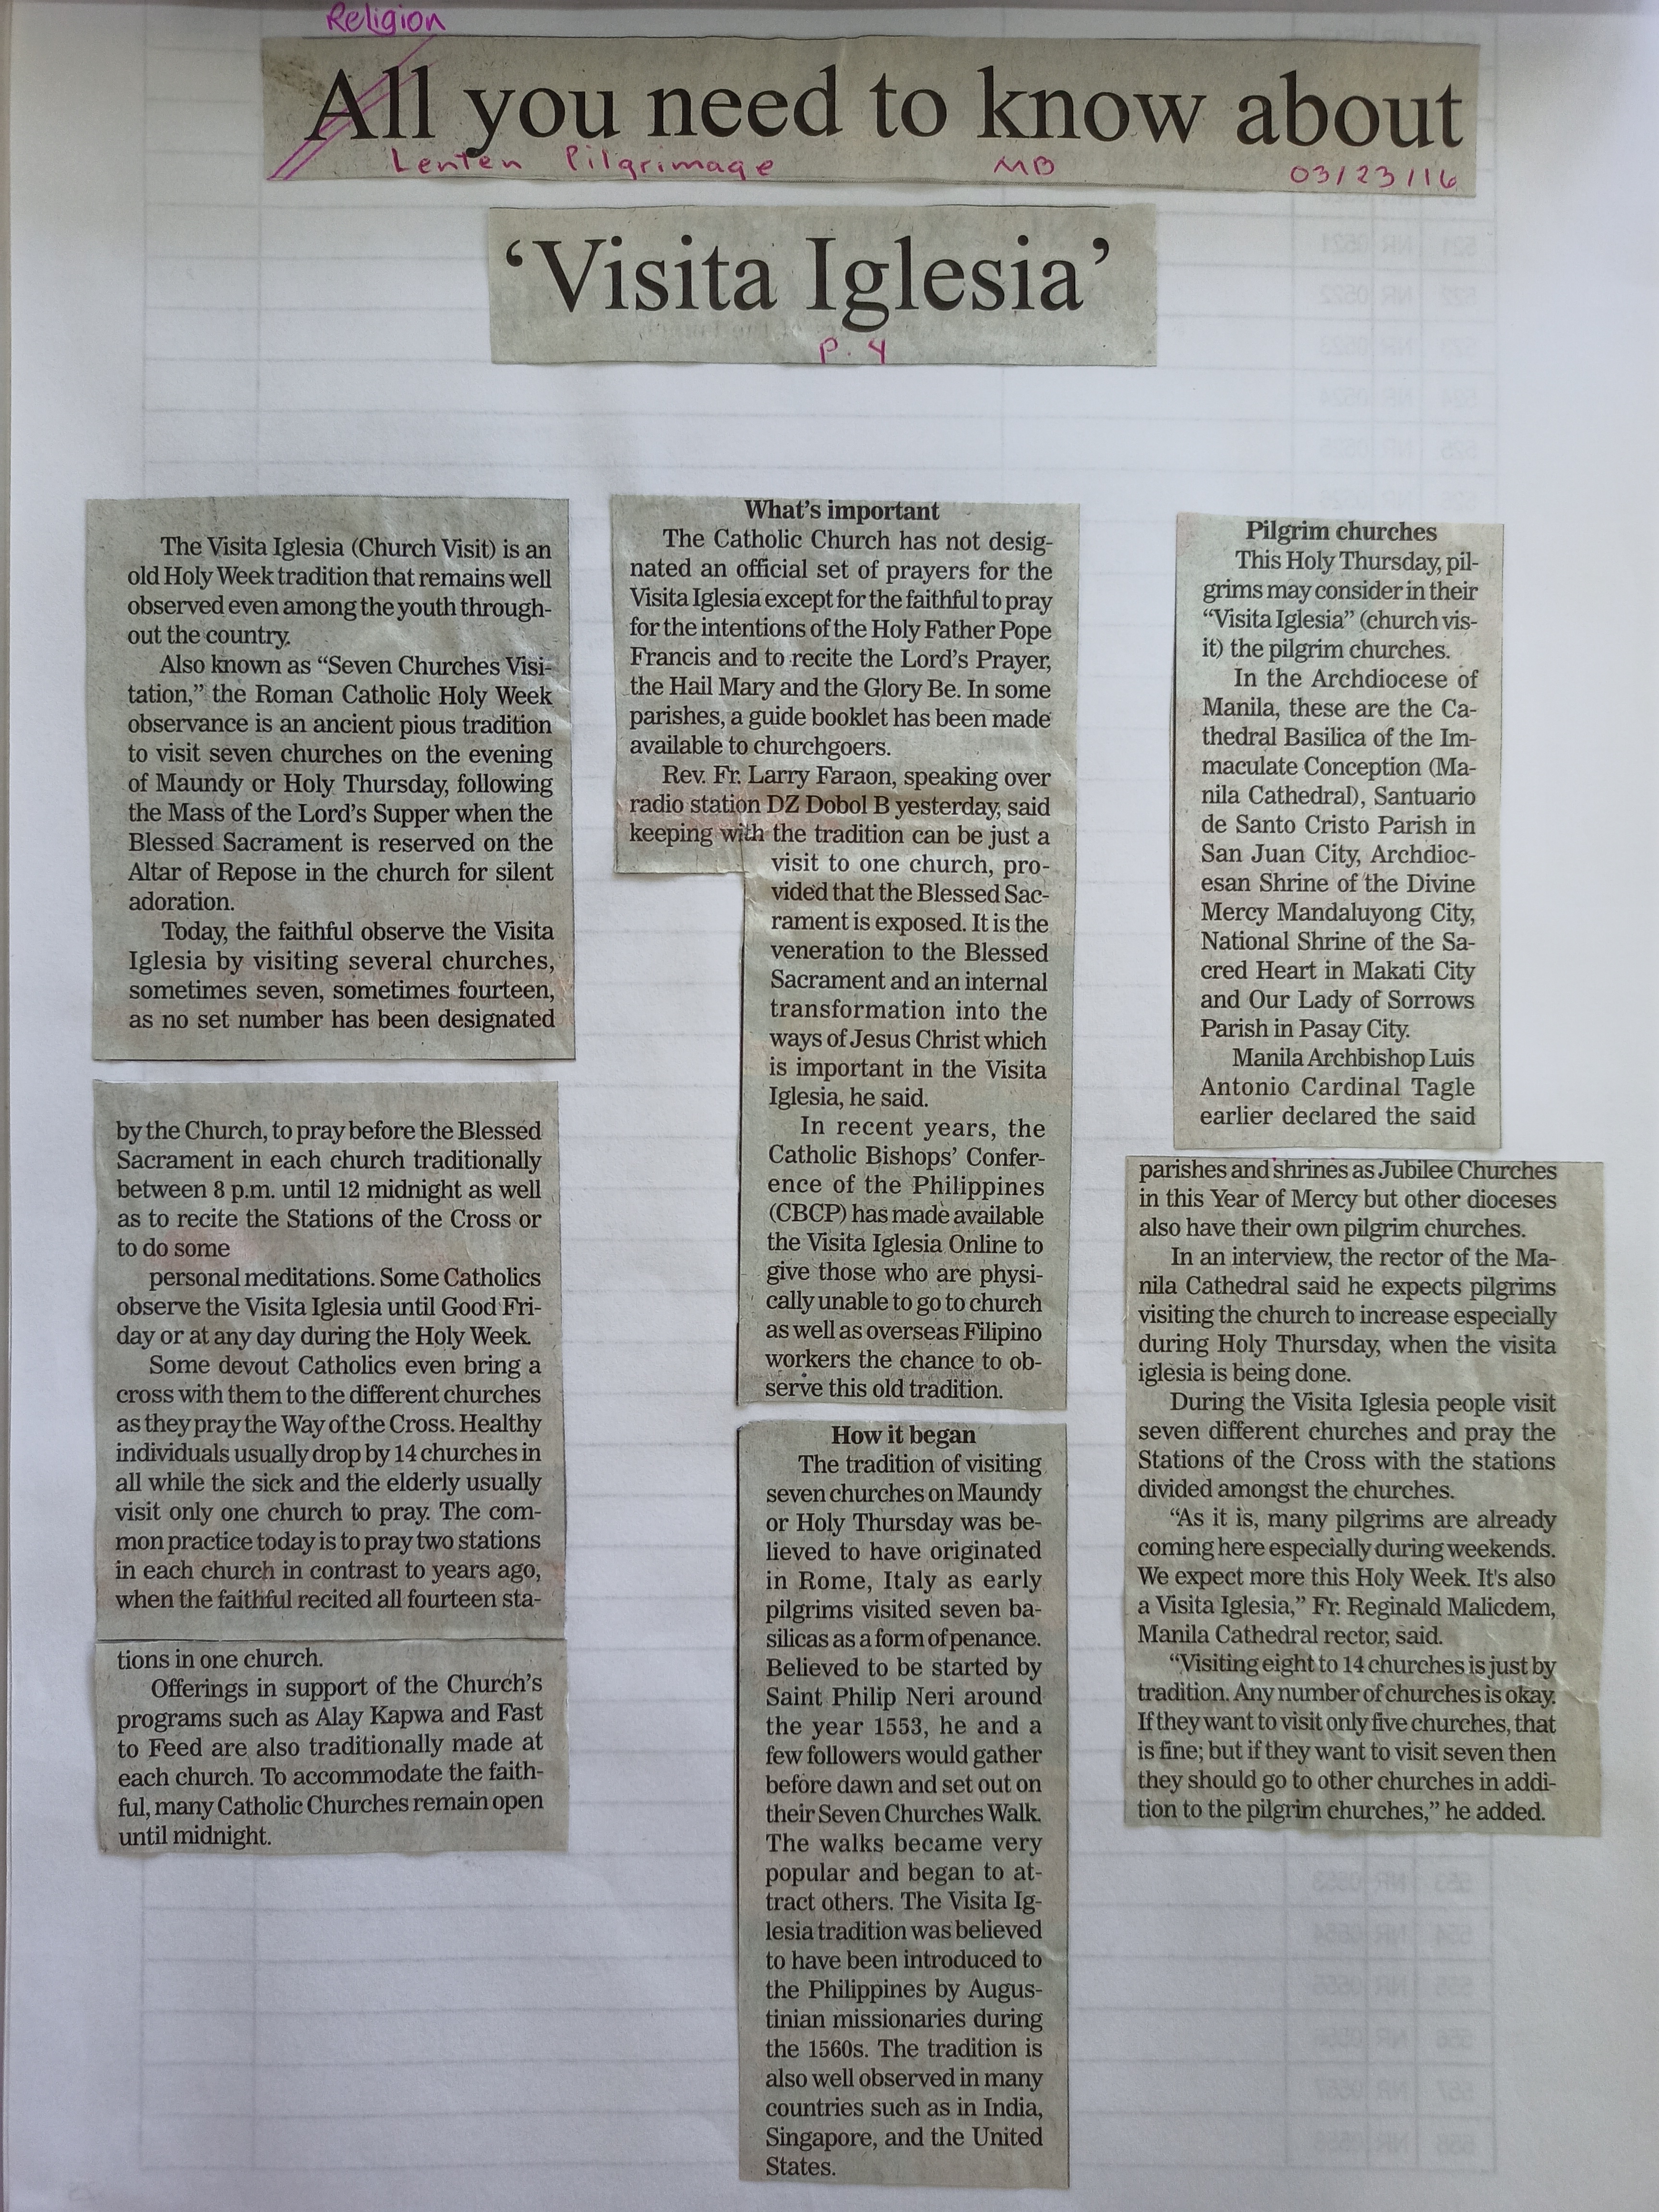 Religion
All you need to know about
Lenten Pilgrimage MB 03/23/16
‘Visita Iglesia’
P. 4
The Visita Iglesia (Church Visit) is an
old Holy Week tradition that remains well
observed even among the youth through-
out the country.
Also known as “Seven Churches Visi-
tation,” the Roman Catholic Holy Week
observance is an ancient pious tradition
to visit seven churches on the evening
of Maundy or Holy Thursday, following
the Mass of the Lord’s Supper when the
Blessed Sacrament is reserved on the
Altar of Repose in the church for silent
adoration.
Today, the faithful observe the Visita
Iglesia by visiting several churches,
sometimes seven, sometimes fourteen,
as no set number has been designated
by the Church, to pray before the Blessed
Sacrament in each church traditionally
between 8 p.m. until 12 midnight as well
as to recite the Stations of the Cross or
to do some
personal meditations. Some Catholics
observe the Visita Iglesia until Good Fri-
day or at any day during the Holy Week.
Some devout Catholics even bring a
cross with them to the different churches
as they pray the Way of the Cross. Healthy
individuals usually drop by 14 churches in
all while the sick and the elderly usually
visit only one church to pray. The com-
mon practice today is to pray two stations
in each church in contrast to years ago,
when the faithful recited all fourteen sta-
tions in one church.
Offerings in support of the Church’s
programs such as Alay Kapwa and Fast
to Feed are also traditionally made at
each church. To accommodate the faith-
ful, many Catholic Churches remain open
until midnight.
What’s important
The Catholic Church has not desig-
nated an official set of prayers for the
Visita Iglesia except for the faithful to pray
for the intentions of the Holy Father Pope
Francis and to recite the Lord’s Prayer,
the Hail Mary and the Glory Be. In some
parishes, a guide booklet has been made
available to churchgoers.
Rev. Fr. Larry Faraon, speaking over
radio station DZ Dobol B yesterday, said
keeping with the tradition can be just a
visit to one church, pro-
vided that the Blessed Sac-
rament is exposed. It is the
veneration to the Blessed
Sacrament and an internal
transformation into the
ways of Jesus Christ which
is important in the Visita
Iglesia, he said.
In recent years, the
Catholic Bishops’ Confer-
ence of the Philippines
(CBCP) has made available
the Visita Iglesia Online to
give those who are physi-
cally unable to go to church
as well as overseas Filipino
workers the chance to ob-
serve this old tradition.
How it began
The tradition of visiting
seven churches on Maundy
or Holy Thursday was be-
lieved to have originated
in Rome, Italy as early
pilgrims visited seven ba-
silicas as a form of penance.
Believed to be started by
Saint Philip Neri around
the year 1553, he and a
few followers would gather
before dawn and set out on
their Seven Churches Walk.
The walks became very
popular and began to at-
tract others. The Visita Ig-
lesia tradition was believed
to have been introduced to
the Philippines by Augus-
tinian missionaries during
the 1560s. The tradition is
also well observed in many
countries such as in India,
Singapore, and the United
States.
Pilgrim churches
This Holy Thursday, pil-
grims may consider in their
“Visita Iglesia” (church vis-
it) the pilgrim churches.
In the Archdiocese of
Manila, these are the Ca-
thedral Basilica of the Im-
maculate Conception (Ma-
nila Cathedral), Santuario
de Santo Cristo Parish in
San Juan City, Archdioc-
esan Shrine of the Divine
Mercy Mandaluyong City,
National Shrine of the Sa-
cred Heart in Makati City
and Our Lady of Sorrows
Parish in Pasay City.
Manila Archbishop Luis
Antonio Cardinal Tagle
earlier declared the said
parishes and shrines as Jubilee Churches
in this Year of Mercy but other dioceses
also have their own pilgrim churches.
In an interview, the rector of the Ma-
nila Cathedral said he expects pilgrims
visiting the church to increase especially
during Holy Thursday, when the visita
iglesia is being done.
During the Visita Iglesia people visit
seven different churches and pray the
Stations of the Cross with the stations
divided amongst the churches.
“As it is, many pilgrims are already
coming here especially during weekends.
We expect more this Holy Week. It's also
a Visita Iglesia,” Fr. Reginald Malicdem,
Manila Cathedral rector, said.
“Visiting eight to 14 churches is just by
tradition. Any number of churches is okay.
If they want to visit only five churches, that
is fine; but if they want to visit seven then
they should go to other churches in addi-
tion to the pilgrim churches,” he added.